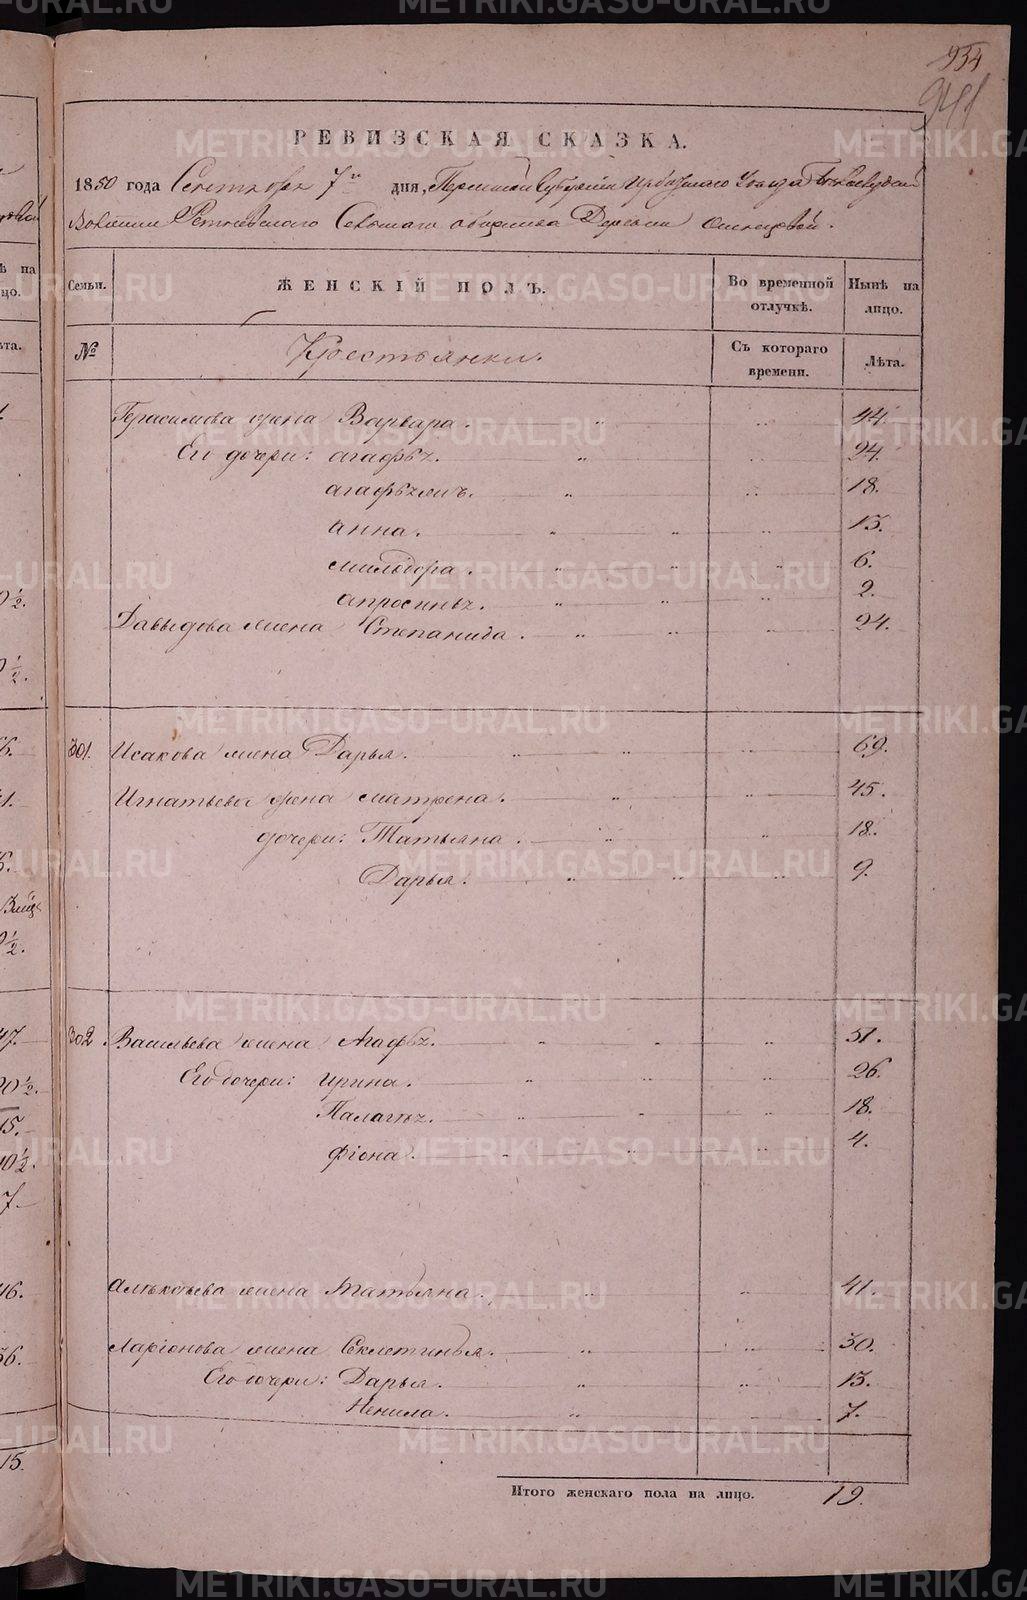 934
941
РЕВИЗСКАЯ СКАЗКА.
1850 года Сентября 7го дня, Пермской Губернии Ирбитскаго Уезда
Волости Сельскаго общества Деревни
Семьи.
ЖЕНСКІЙ ПОЛЪ.
Во временной отлучкѣ.
Нынѣ на лицо.
№
Крестьянки.
Съ котораго времени.
Лѣта.
Герасимова жена Варвара. 44.
Его дочери: Агафья. 24.
18.
Анна. 13.
6.
2.
Давыдова жена Степанида. 24.
301. Исакова жена Дарья. 69.
Игнатьева жена Матрена. 45.
дочери: Татьяна. 18.
Дарья. 9.
302. Васильева жена Агафья. 51.
Его дочери: Ирина. 26.
Палагея. 18.
Фіона. 4.
жена Татьяна. 41.
Ларіонова жена 30.
Его дочери: Дарья. 13.
Ненила. 7.
Итого женскаго пола на лицо. 19.
METRIKI.GASO-URAL.RU